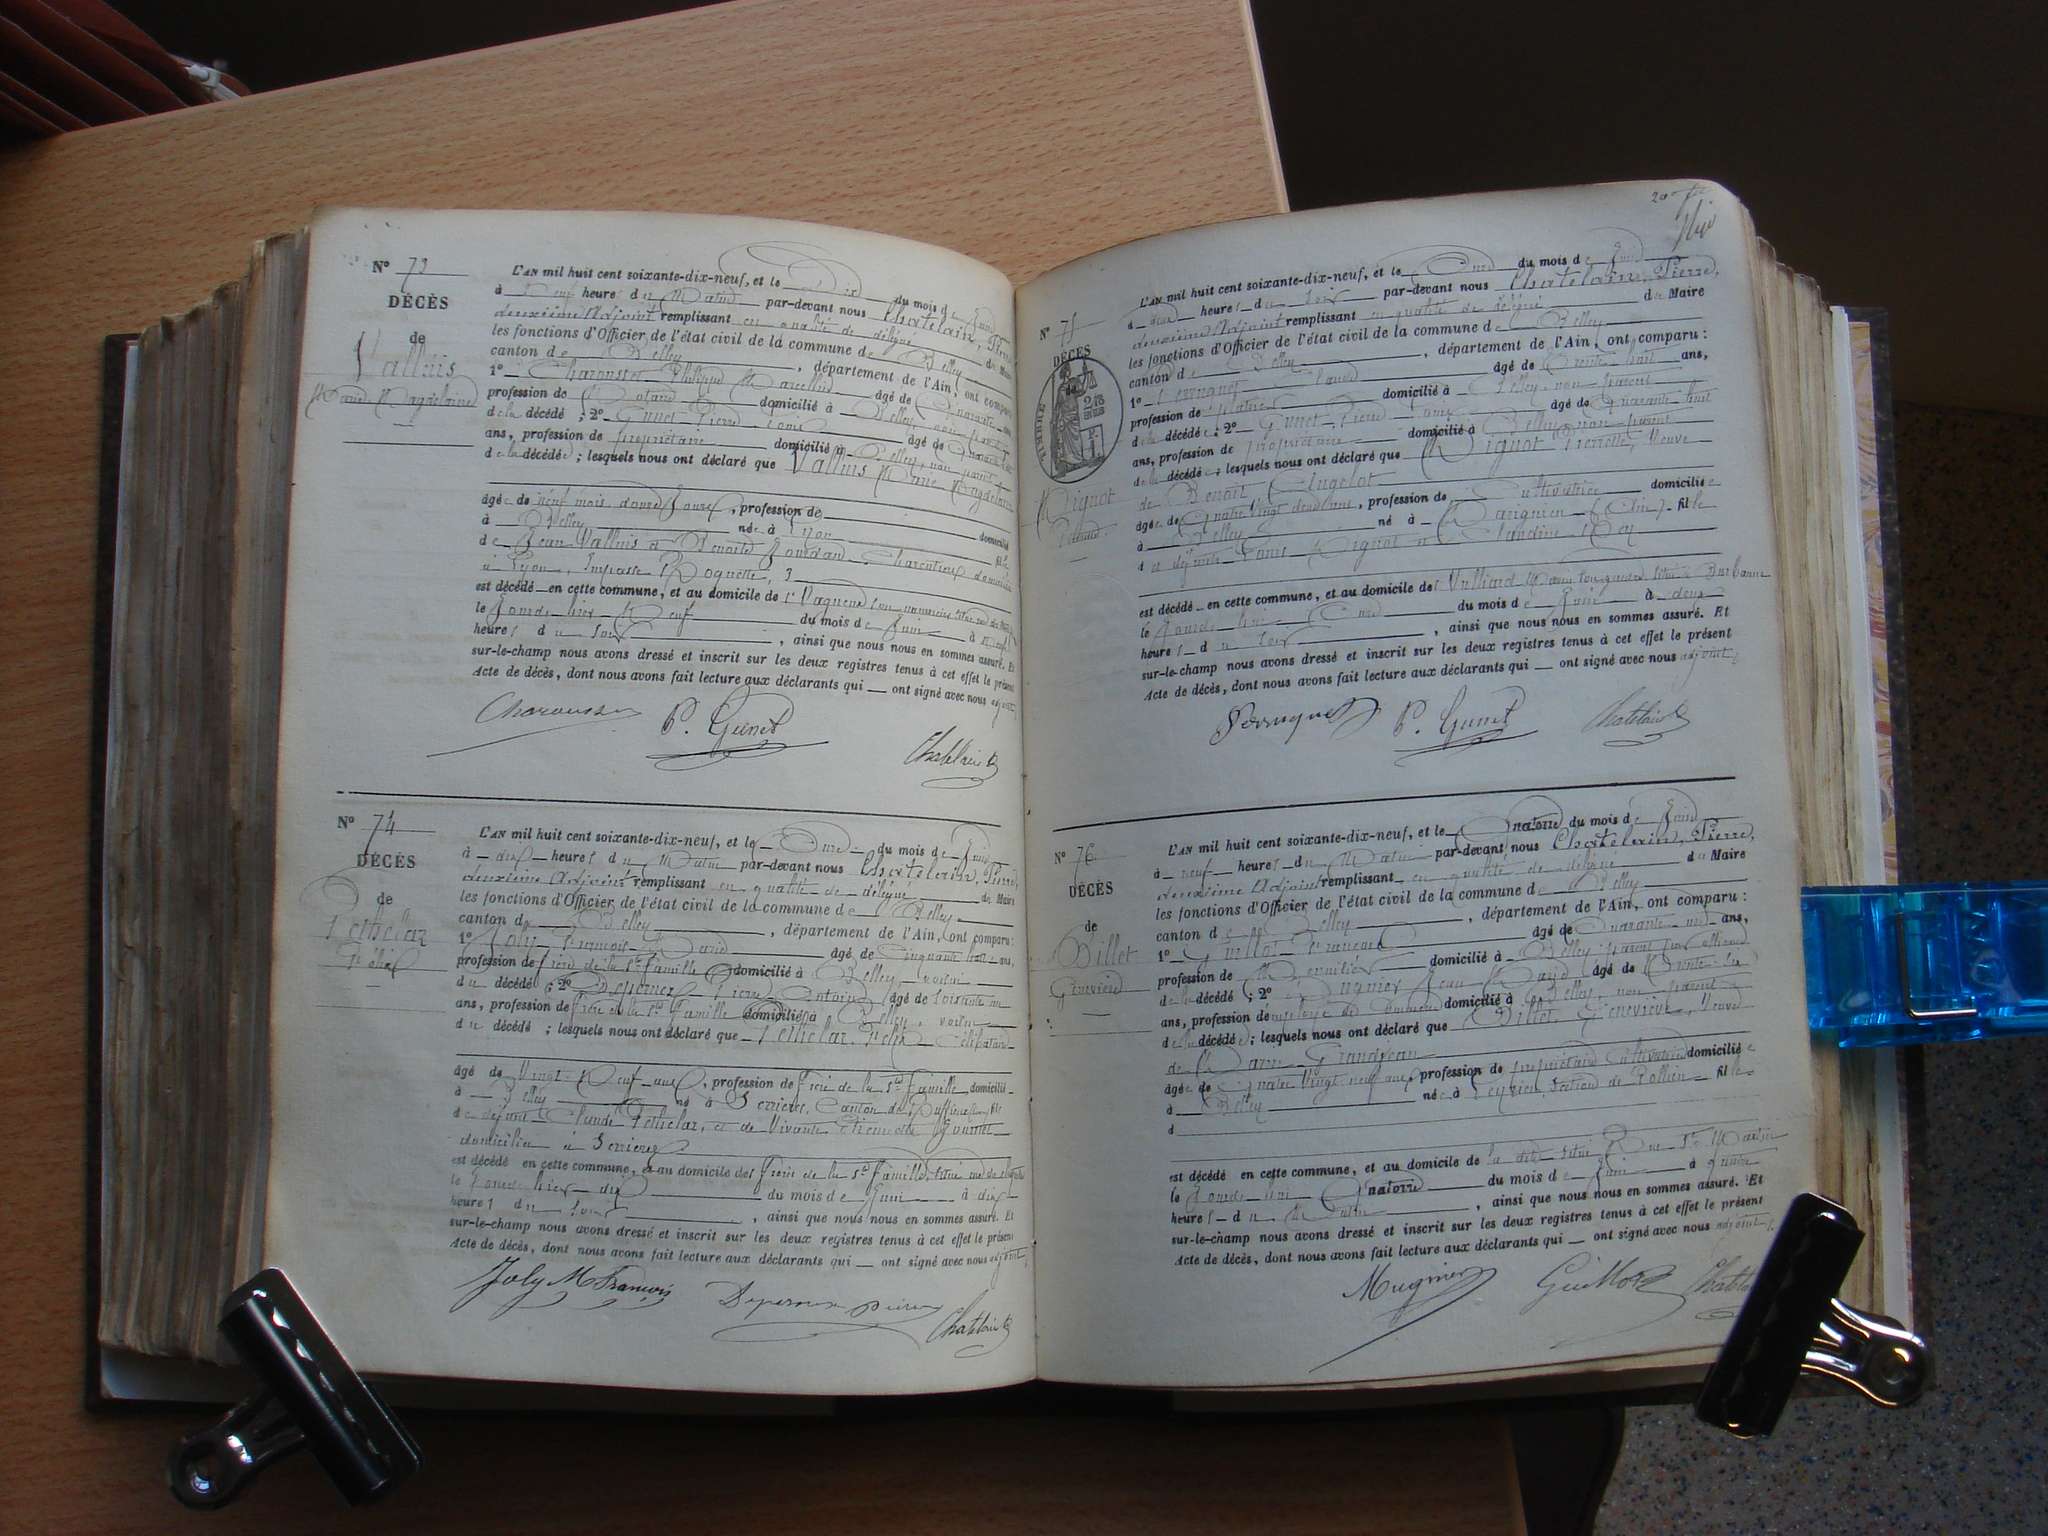 N° 73
DÉCÈS
de
Valluis
Marie Magdelaine
L'AN mil huit cent soixante-dix-neuf, et le Dix du mois de Juin
à Neuf heures du Matin par-devant nous Chatelain, Pierre
deuxième Adjoint remplissant en qualité de délégué du Maire
les fonctions d'Officier de l'état civil de la commune de Belley
canton de Belley, département de l'Ain, ont comparu
1° Charousset Philippe Marcellin âgé de Quarante
profession de Notaire domicilié à Belley, non parent
de la décédée; 2° Gunet Pierre Louis âgé de Quarante
ans, profession de propriétaire domicilié à Belley, non parent
de la décédée; lesquels nous ont déclaré que Valluis Marie Magdelaine
âgée de neuf mois douze Jours, profession de
à Belley née à Lyon domicilié
de Jean Valluis et Benoite Jourdan, Charentiers
à Lyon, Impasse Roquette, 3
est décédée en cette commune, et au domicile de
le Jourde hier Neuf du mois de Juin à
heures du soir, ainsi que nous nous en sommes assuré. Et
sur-le-champ nous avons dressé et inscrit sur les deux registres tenus à cet effet le présent
Acte de décès, dont nous avons fait lecture aux déclarants qui ont signé avec nous adjoint
Charousset P. Gunet Chatelain
N° 74
DÉCÈS
de
Pethelaz
Félix
L'AN mil huit cent soixante-dix-neuf, et le Onze du mois de Juin
à dix heures du Matin par-devant nous Chatelain, Pierre,
deuxième Adjoint remplissant en qualité de délégué du Maire
les fonctions d'Officier de l'état civil de la commune de Belley
canton de Belley, département de l'Ain, ont comparu:
1° Joly François Marie âgé de Cinquante ans,
profession de frère de la Ste Famille domicilié à Belley, voisin
du décédé; 2° Pierre Antoine âgé de soixante un
ans, profession de frère de la Ste Famille domicilié à Belley, voisin
du décédé; lesquels nous ont déclaré que Pethelaz Félix Célibataire
âgé de Vingt Neuf ans, profession de frère de la Ste Famille domicilié
à Belley né à Serrières, Canton de Ruffieux, fils
de défunt Claude Pethelaz, et de Vivante Etiennette
domiciliée à Serrières
est décédé en cette commune, et au domicile des frères de la Ste Famille, situé
le Jourde hier dix du mois de Juin à dix
heures du soir, ainsi que nous nous en sommes assuré. Et
sur-le-champ nous avons dressé et inscrit sur les deux registres tenus à cet effet le présent
Acte de décès, dont nous avons fait lecture aux déclarants qui ont signé avec nous adjoint
Joly M François Chatelain
N° 75
DÉCÈS
de
TIMBRE
Mignot
L'AN mil huit cent soixante-dix-neuf, et le Onze du mois de Juin
à deux heures du soir par-devant nous Chatelain, Pierre,
deuxième Adjoint remplissant en qualité de délégué du Maire
les fonctions d'Officier de l'état civil de la commune de Belley
canton de Belley, département de l'Ain, ont comparu:
1° Claude âgé de Trente huit ans,
profession de domicilié à Belley non parent
de la décédée; 2° Gunet Pierre Louis âgé de Quarante huit
ans, profession de propriétaire domicilié à Belley non parent
de la décédée; lesquels nous ont déclaré que Mignot Pierrette, Veuve
de Benoit
âgée de Quatre Vingt deux ans, profession de Cultivatrice domiciliée
à Belley né à Marignieu (Ain) fille
d et défunte Louis Mignot et Claudine Roy
est décédée en cette commune, et au domicile de
le du mois de Juin à deux
heures du soir, ainsi que nous nous en sommes assuré. Et
sur-le-champ nous avons dressé et inscrit sur les deux registres tenus à cet effet le présent
Acte de décès, dont nous avons fait lecture aux déclarants qui ont signé avec nous adjoint
P. Gunet Chatelain
N° 76
DÉCÈS
de
Billet
Geneviève
L'AN mil huit cent soixante-dix-neuf, et le Quatorze du mois de Juin
à neuf heures du Matin par-devant nous Chatelain, Pierre,
deuxième Adjoint remplissant en qualité de délégué du Maire
les fonctions d'Officier de l'état civil de la commune de Belley
canton de Belley, département de l'Ain, ont comparu:
1° Guillot François âgé de Quarante ans,
profession de Menuisier domicilié à Belley, parent
de la décédée; 2° Mugnier Jean Marie âgé de Trente six
ans, profession de domicilié à Belley, non parent
de la décédée; lesquels nous ont déclaré que Billet Geneviève, Veuve
de Grandjean
âgée de Quatre Vingt neuf ans, profession de propriétaire Cultivatrice domiciliée
à Belley née à Peyrieu, section de Rollien fille
d
est décédée en cette commune, et au domicile de la dite situé Rue St Martin
le Quatorze du mois de Juin à quatre
heures du Matin, ainsi que nous nous en sommes assuré. Et
sur-le-champ nous avons dressé et inscrit sur les deux registres tenus à cet effet le présent
Acte de décès, dont nous avons fait lecture aux déclarants qui ont signé avec nous adjoint
Mugnier Guillot Chatelain